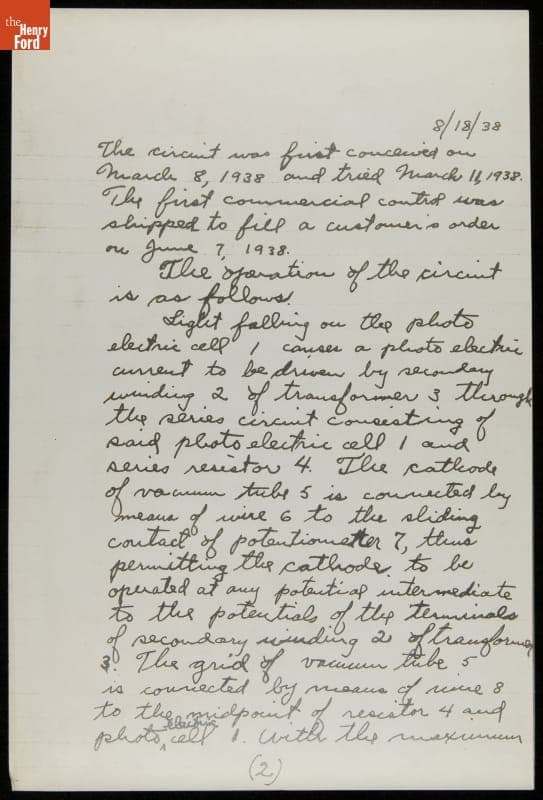 the
Henry
Ford
8/18/38
The circuit was first conceived on
March 8, 1938 and tried March 11, 1938.
The first commercial control was
shipped to fill a customer's order
on June 7, 1938.
The operation of the circuit
is as follows.
Light falling on the photo
electric cell 1 causes a photo electric
current to be driven by secondary
winding 2 of transformer 3 through
the series circuit consisting of
said photo electric cell 1 and
series resistor 4. The cathode
of vacuum tube 5 is connected by
means of wire 6 to the sliding
contact of potentiometer 7, thus
permitting the cathode to be
operated at any potential intermediate
to the potentials of the terminals
of secondary winding 2 of transformer
3. The grid of vacuum tube 5
is connected by means of wire 8
to the midpoint of resistor 4 and
photo electric cell 1. With the maximum
(2)